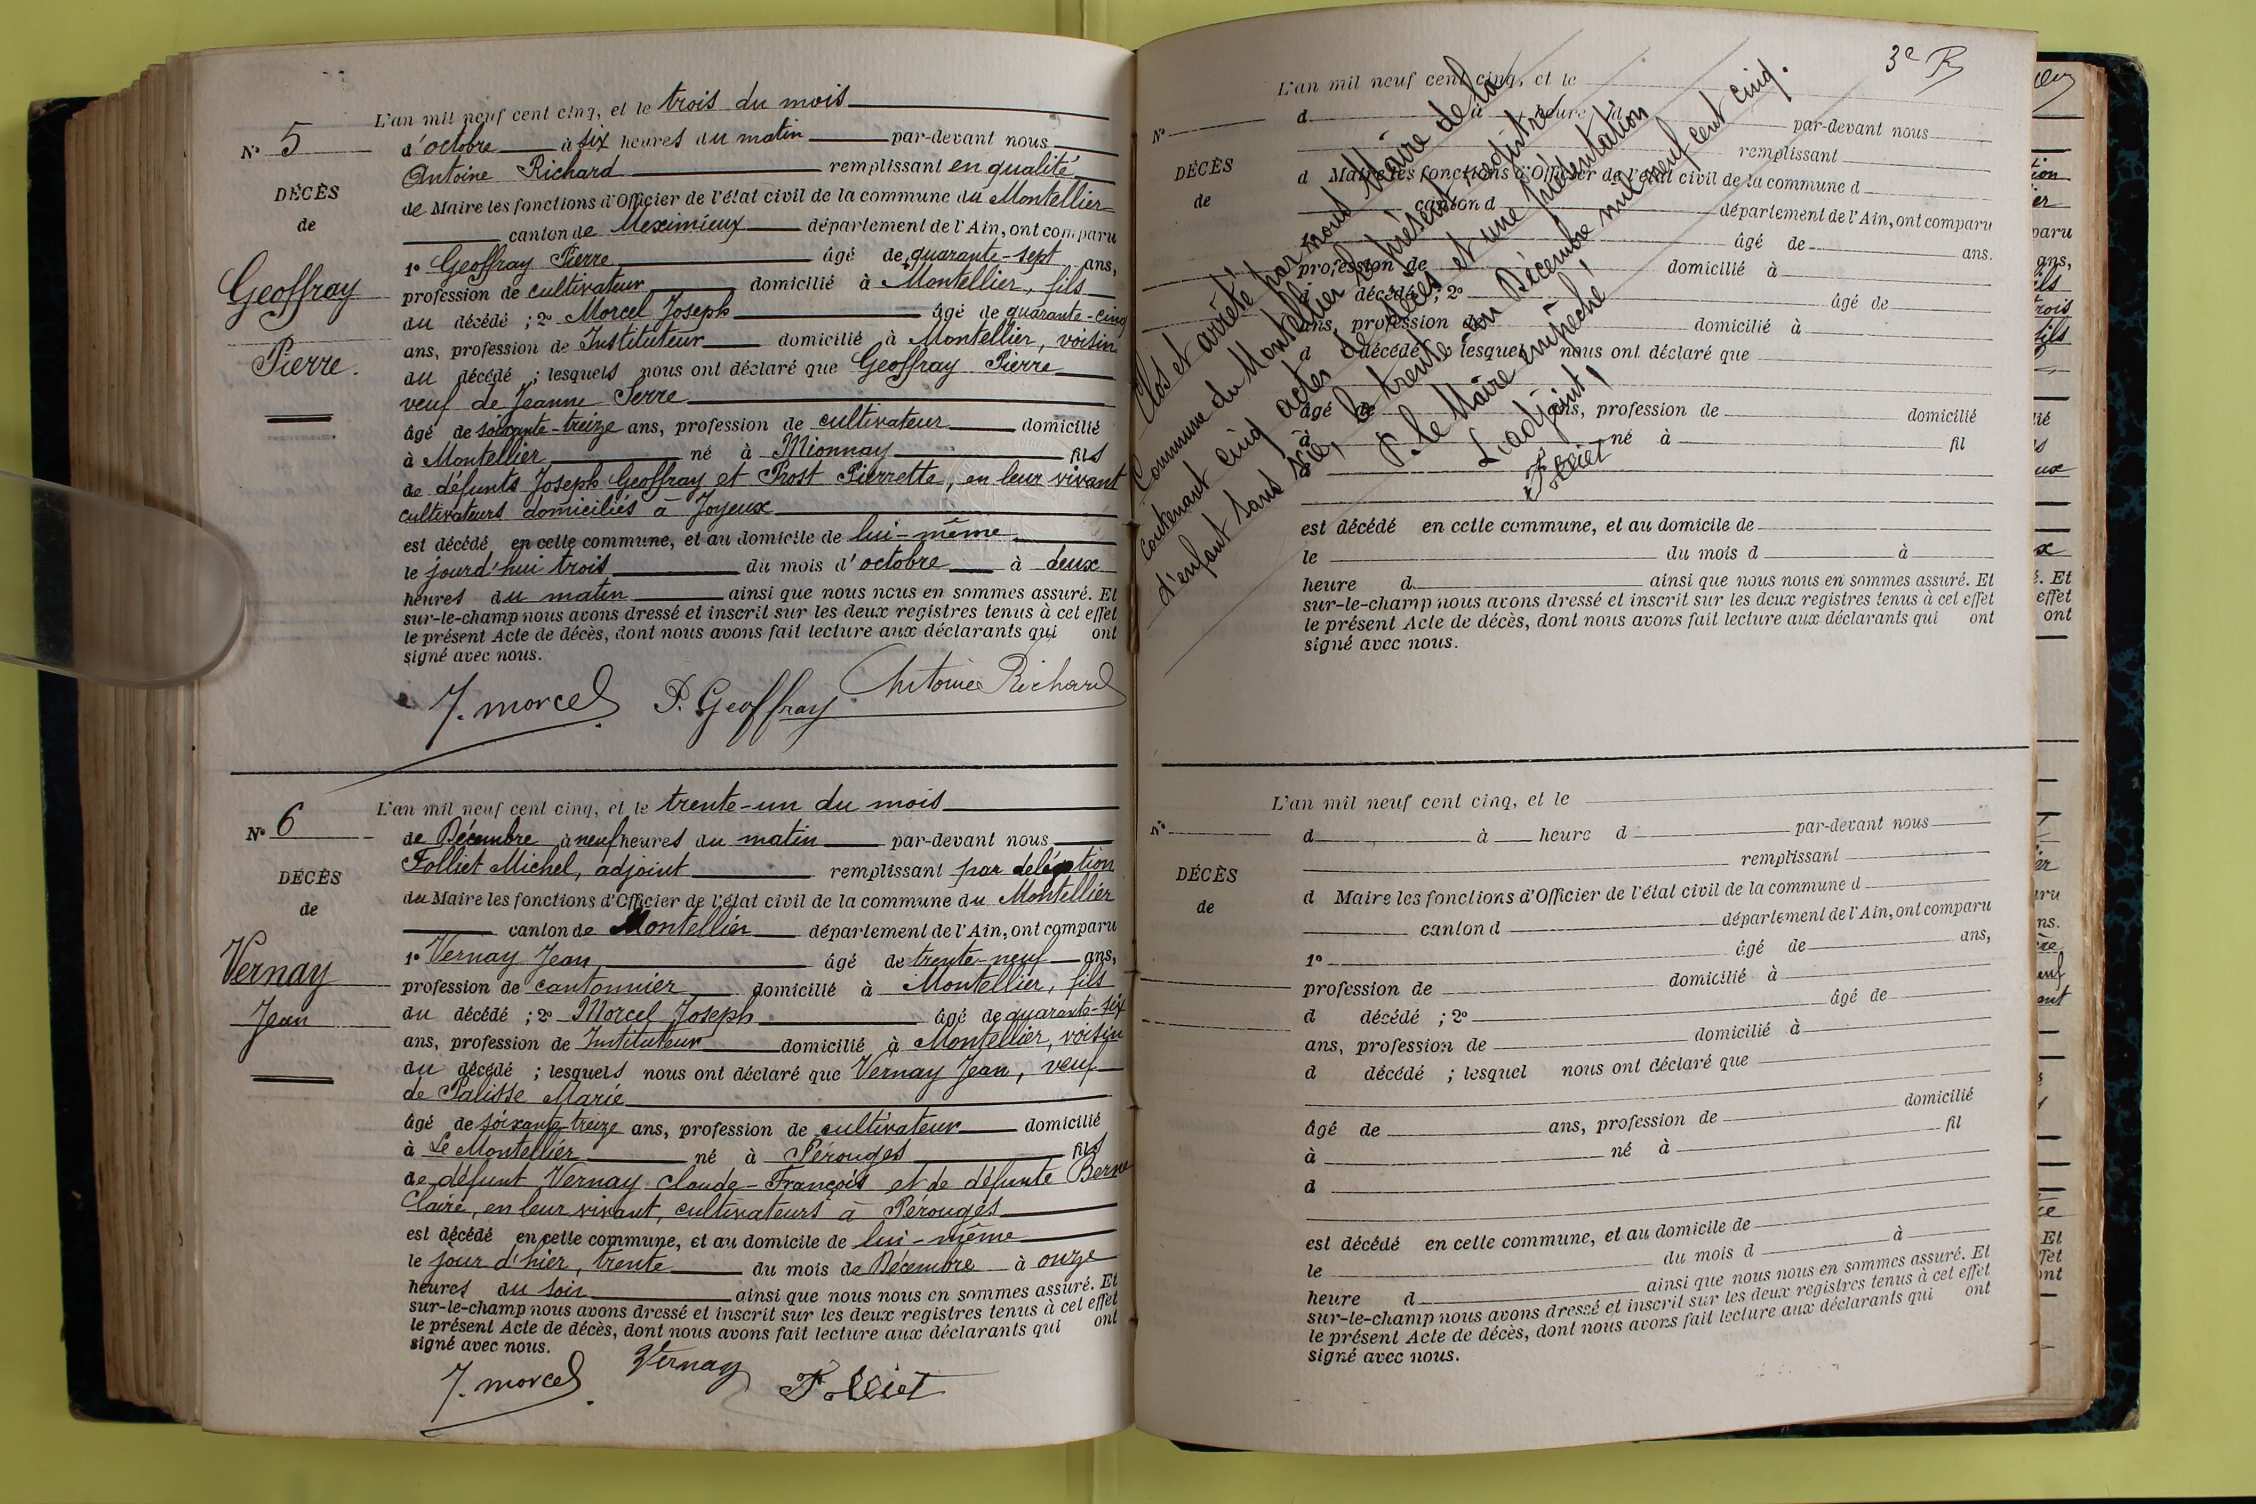 L'an mil neuf cent cinq, et le trois du mois
N° 5
d'octobre à six heures du matin par-devant nous
Antoine Richard remplissant en qualité
DÉCÈS
de Maire les fonctions d'Officier de l'état civil de la commune du Montellier
de
canton de Meximieux département de l'Ain, ont comparu
1° Geoffray Pierre âgé de quarante-sept ans,
Geoffray
profession de cultivateur domicilié à Montellier, fils
du décédé ; 2° Morcel Joseph âgé de quarante-cinq
ans, profession de Instituteur domicilié à Montellier, voisin
Pierre.
du décédé ; lesquels nous ont déclaré que Geoffray Pierre
veuf de Jeanne Serre
âgé de soixante-treize ans, profession de cultivateur domicilié
à Montellier né à Mionnay fils
de défunts Joseph Geoffray et Prost Pierrette, en leur vivant
cultivateurs domiciliés à Joyeux
est décédé en cette commune, et au domicile de lui-même
le jourd'hui trois du mois d'octobre à deux
heures du matin ainsi que nous nous en sommes assuré. Et
sur-le-champ nous avons dressé et inscrit sur les deux registres tenus à cet effet
le présent Acte de décès, dont nous avons fait lecture aux déclarants qui ont
signé avec nous.
J. morcel P. Geoffray Antoine Richard
L'an mil neuf cent cinq, et le trente-un du mois
N° 6
de Décembre à neuf heures du matin par-devant nous
Folliet Michel, adjoint remplissant par delégation
DÉCÈS
du Maire les fonctions d'Officier de l'état civil de la commune du Montellier
de
canton de Montellier département de l'Ain, ont comparu
1° Vernay Jean âgé de trente-neuf ans,
Vernay
profession de cantonnier domicilié à Montellier, fils
du décédé ; 2° Morcel Joseph âgé de quarante-six
Jean
ans, profession de Instituteur domicilié à Montellier, voisin
du décédé ; lesquels nous ont déclaré que Vernay Jean, veuf
de Palisse Marie
âgé de soixante treize ans, profession de cultivateur domicilié
à Le Montellier né à Pérouges fils
de défunt Vernay Claude-François et de défunte Berne
Claire, en leur vivant, cultivateurs à Pérouges
est décédé en cette commune, et au domicile de lui-même
le jour d'hier, trente du mois de Décembre à onze
heures du soir ainsi que nous nous en sommes assuré. Et
sur-le-champ nous avons dressé et inscrit sur les deux registres tenus à cet effet
le présent Acte de décès, dont nous avons fait lecture aux déclarants qui ont
signé avec nous.
J. morcel Vernay Folliet
3e R
L'an mil neuf cent cinq, et le
N°
d à heure d par-devant nous
remplissant
DÉCÈS
d Maire les fonctions d'Officier de l'état civil de la commune d
de
canton d département de l'Ain, ont comparu
âgé de ans.
profession de domicilié à
d décédé ; 2° âgé de
ans, profession de domicilié à
d décédé lesquel nous ont déclaré que
âgé de ans, profession de domicilié
à né à fil
est décédé en cette commune, et au domicile de
le du mois d à
heure d ainsi que nous nous en sommes assuré. Et
sur-le-champ nous avons dressé et inscrit sur les deux registres tenus à cet effet
le présent Acte de décès, dont nous avons fait lecture aux déclarants qui ont
signé avec nous.
Clos et arrêté par nous Maire de la
Commune du Montellier le présent registre
contenant cinq actes de décès et une présentation
d'enfant sans vie, le trente un Décembre mil neuf cent cinq.
P. le Maire empêché
L'adjoint,
Folliet
L'an mil neuf cent cinq, et le
N°
d à heure d par-devant nous
remplissant
DÉCÈS
d Maire les fonctions d'Officier de l'état civil de la commune d
de
canton d département de l'Ain, ont comparu
1° âgé de ans,
profession de domicilié à
d décédé ; 2° âgé de
ans, profession de domicilié à
d décédé ; lesquel nous ont déclaré que
âgé de ans, profession de domicilié
à né à fil
d
est décédé en cette commune, et au domicile de
le du mois d à
heure d ainsi que nous nous en sommes assuré. Et
sur-le-champ nous avons dressé et inscrit sur les deux registres tenus à cet effet
le présent Acte de décès, dont nous avons fait lecture aux déclarants qui ont
signé avec nous.